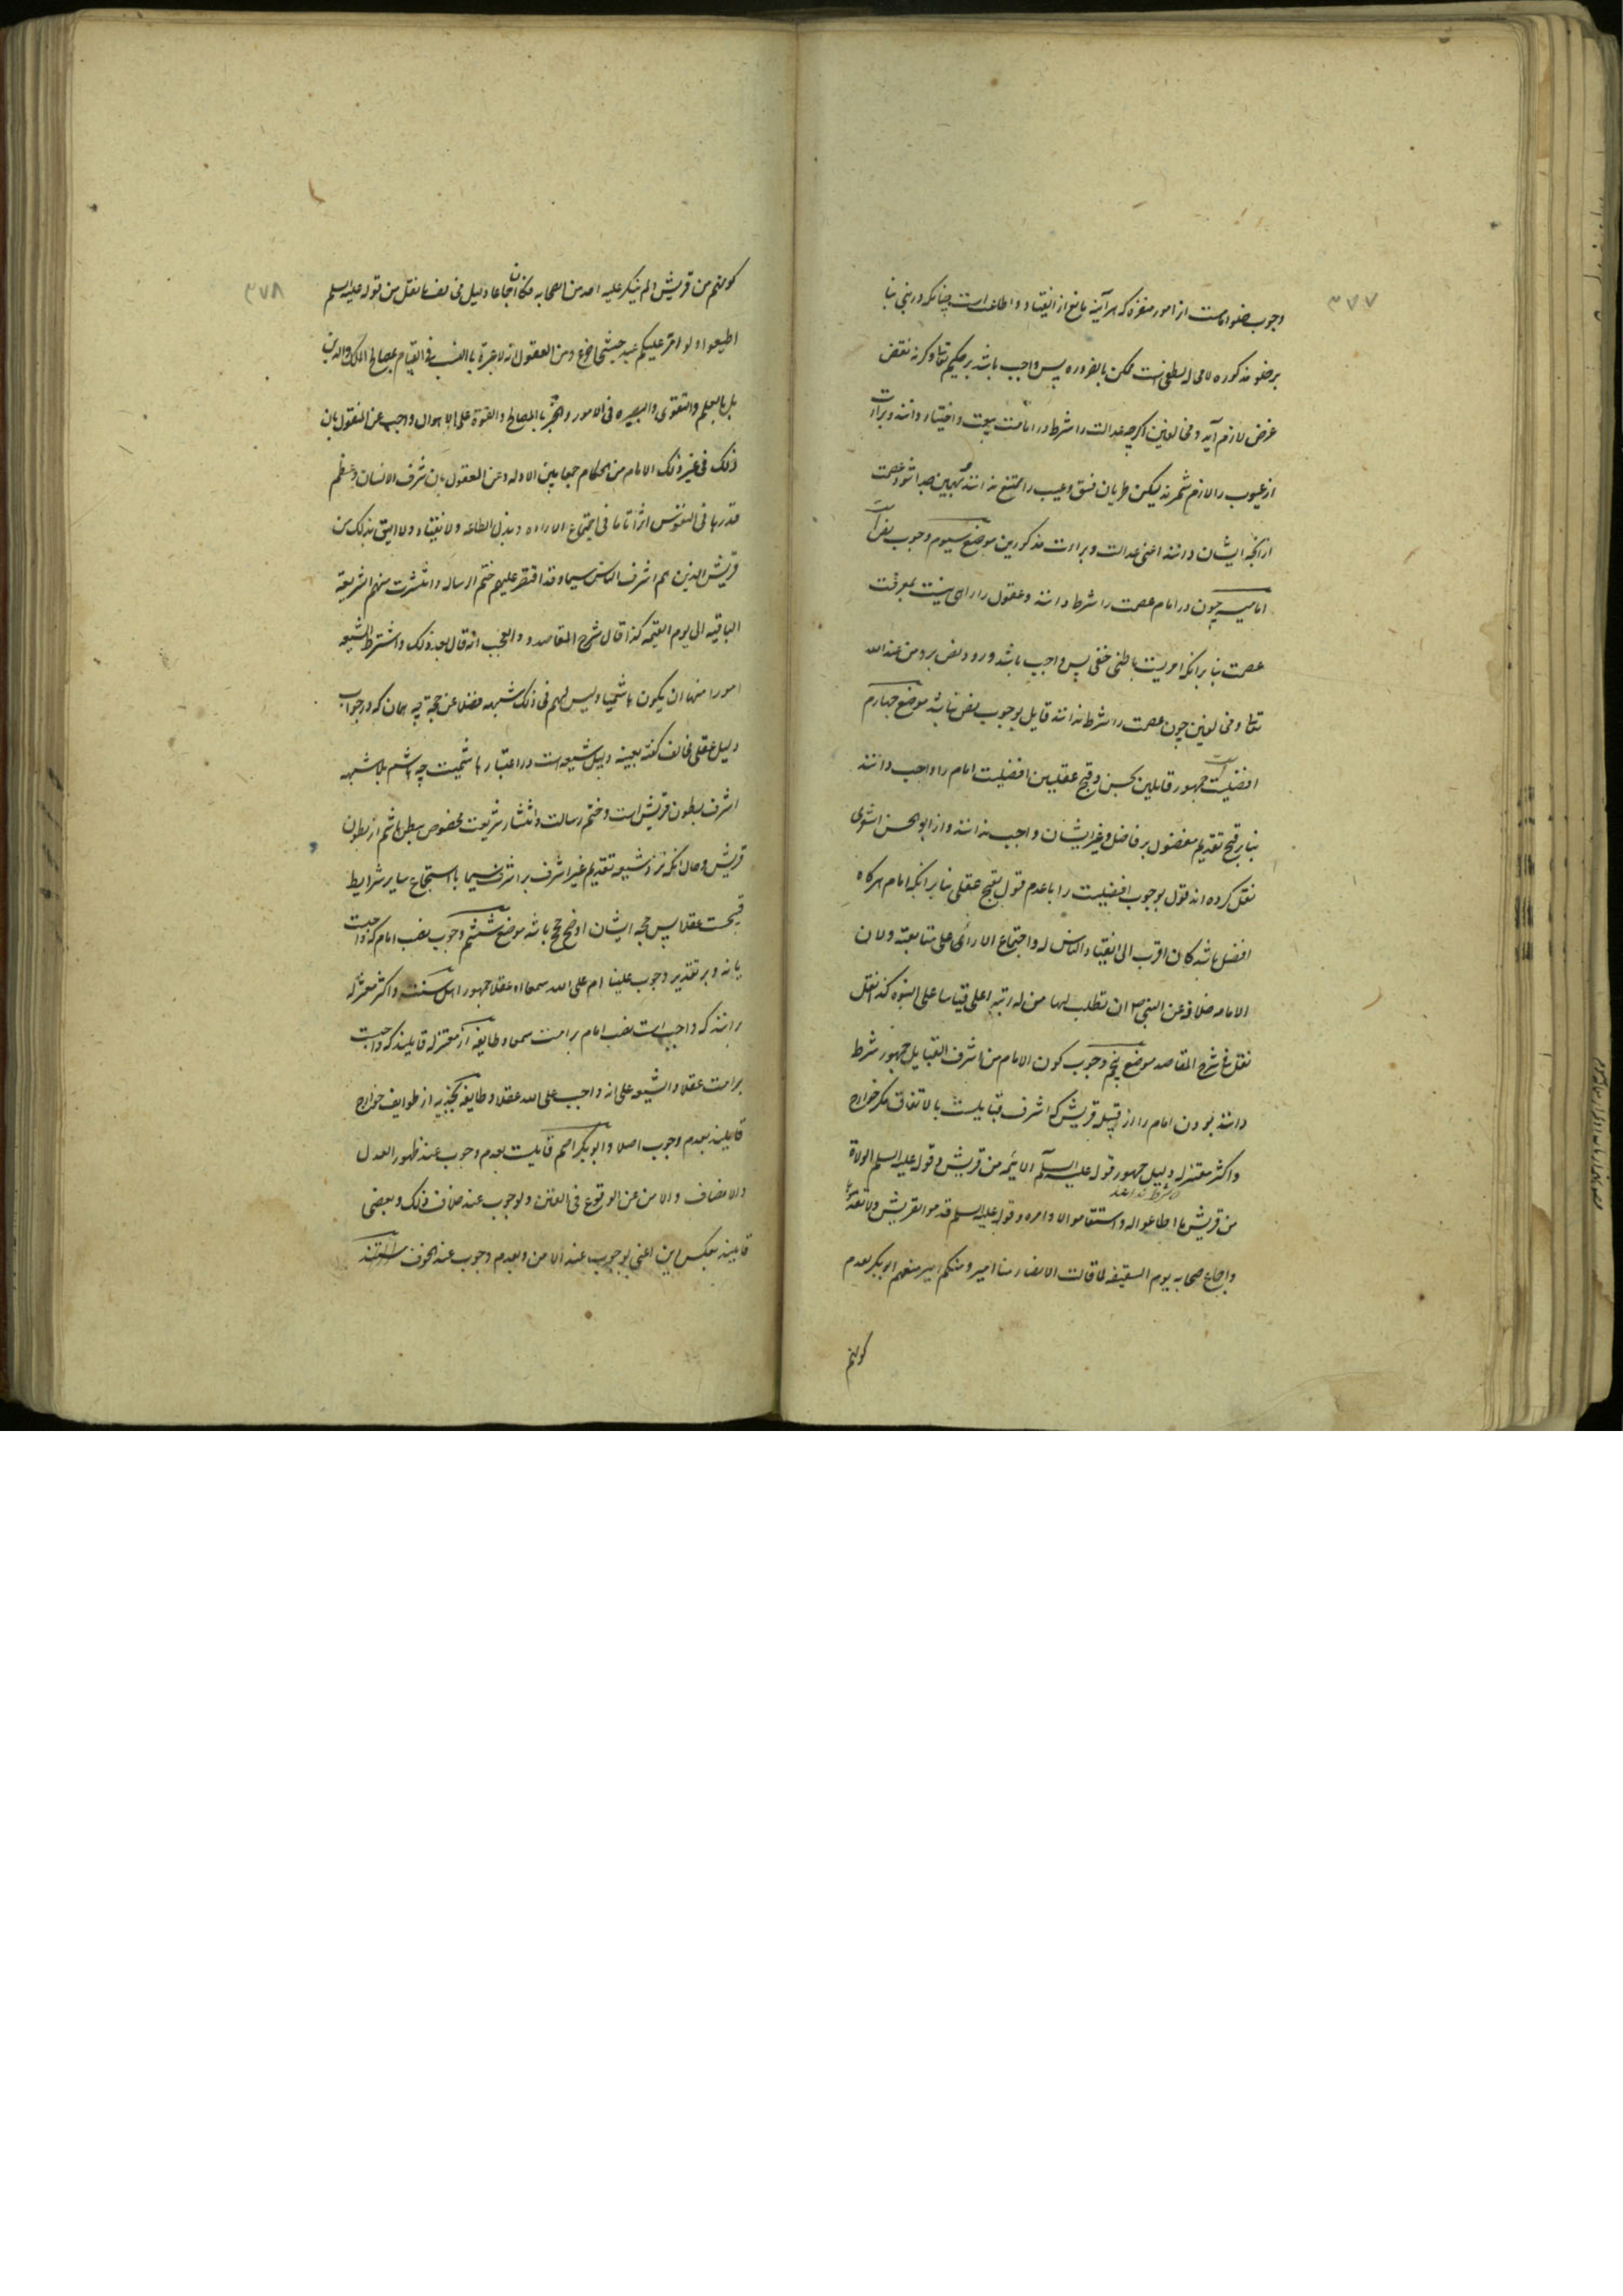 ۳۷۷
وجوب خلو امامت از امور منفره که هر آینه مانع از انقیاد و اطاعت است چنانکه در نبی بنا
بر خلو مذکوره لا محاله لطفی است ممکن بالضروره پس واجب باشد بر حکیم تعالی و گرنه نقض
غرض لازم آید و مخالفین اگرچه عدالت را شرط در امامت بیعت و اختیار دانند و برائت
از عیوب را لازم شمرند لیکن طریان فسق و عیب را ممتنع ندانند و بهمین جدا شود عصمت
از آنچه ایشان دانند اعنی عدالت و برائت مذکورین موضع سیوم وجوب نص است
امامیه چون در امام عصمت را شرط دانند و عقول را راهی نیست بمعرفت
عصمت بنا بر آنکه امریست باطنی خفی پس واجب باشد ورود نص برو من عند الله
تعالی و مخالفین چون عصمت را شرط ندانند قایل بوجوب نص نباشند موضع چهارم
افضلیت است جمهور قایلین بحسن و قبح عقلیین افضلیت امام را واجب دانند
بنا بر قبح تقدیم مفضول بر فاضل و غیر ایشان واجب ندانند و از ابو الحسن اشعری
نقل کرده اند قول بوجوب افضلیت را با عدم قول بقبح عقلی بنا بر آنکه امام هرگاه
افضل باشد کان اقرب الی انقیاد الناس له و اجتماع الارائی علی متابعته و لان
الامامه خلافه عن النبی ص ان تطلب لها من له رتبة اعلی قیاسا علی النبوه کذا نقل
نقل فی شرح المقاصد موضع پنجم وجوب کون الامام من اشرف القبایل جمهور شرط
دانند بودن امام را از قبیله قریش که اشرف قبایلست بالاتفاق مگر خوارج
و اکثر معتزله دلیل جمهور قوله علیه السلام الائمه من قریش و قوله علیه السلم الولاة
که شرط ندانند
من قریش ما اطاعوا لله و استقاموا لامره و قوله علیه السلم قدموا قریش و لا تقدموها
و اجماع صحابه یوم السقیفه لما قالت الانصار منا امیر و منکم امیر منعهم ابوبکر بعدم
کونهم
۳۷۸
کونهم من قریش و لم ینکر علیه احد من الصحابه فکان اجماعا و دلیل مخالف ما نقل من قوله علیه السلم
اطیعوا و لو امر علیکم عبد حبشی اجدع و من العقول انه لا عبرة بالنسب فی القیام بمصالح الملک و الدین
بل بالعلم و التقوی و البصیره فی الامور و الخبرة بالمصالح و القوة علی الاهوال و اجیب عن المنقول بان
ذلک فی غیر ذلک الامام من الحکام جمعا بین الادله و عن المعقول بان شرف الانسان و عظم
قدرها فی النفوس اثرا تاما فی اجتماع الاراده و بذل الطاعه و الانقیاد و لا الیق بذلک من
قریش الذین هم اشرف الناس سیما و قد اقتصر علیهم ختم الرساله و انتشرت منهم الشریعة
الباقیه الی یوم القیمه کذا قال شرح المقاصد و العجب انه قال بعد ذلک و اشترط الشیعه
امورا منها ان یکون هاشمیا و لیس لهم فی ذلک شبهه فضلا عن حجة چه همان که در جواب
دلیل عقلی مخالف گفته بعینه دلیل شیعه است در اعتبار هاشمیت چه هاشم بلا شبهه
اشرف بطون قریش است و ختم رسالت و انتشار شریعت مخصوص ببطن هاشم از بطون
قریش و حال آنکه نزد شیعه تقدیم غیر اشرف بر اشرف سیما با استجماع سایر شرایط
قبیحست عقلا پس حجه ایشان اوضح حجج باشد موضع ششم وجوب نصب امام که واجبست
یا نه و بر تقدیر وجوب علینا ام علی الله سمعا او عقلا جمهور اهل سنت و اکثر معتزله
برانند که واجب است نصب امام بر امت سمعا و طایفه از معتزله قایلند که واجبست
بر امت عقلا و الشیعه علی انه واجب علی الله عقلا و طایفه نجدیه از طوایف خوارج
قایلند بعدم وجوب اصلا و ابوبکر اصم قایلست بعدم وجوب عند ظهور العدل
و الانصاف و الامن عن الوقوع فی الفتن و لوجوب عند خلاف ذلک و بعضی
قایلند بعکس این اعنی بوجوب عند الامن و بعدم وجوب عند الخوف